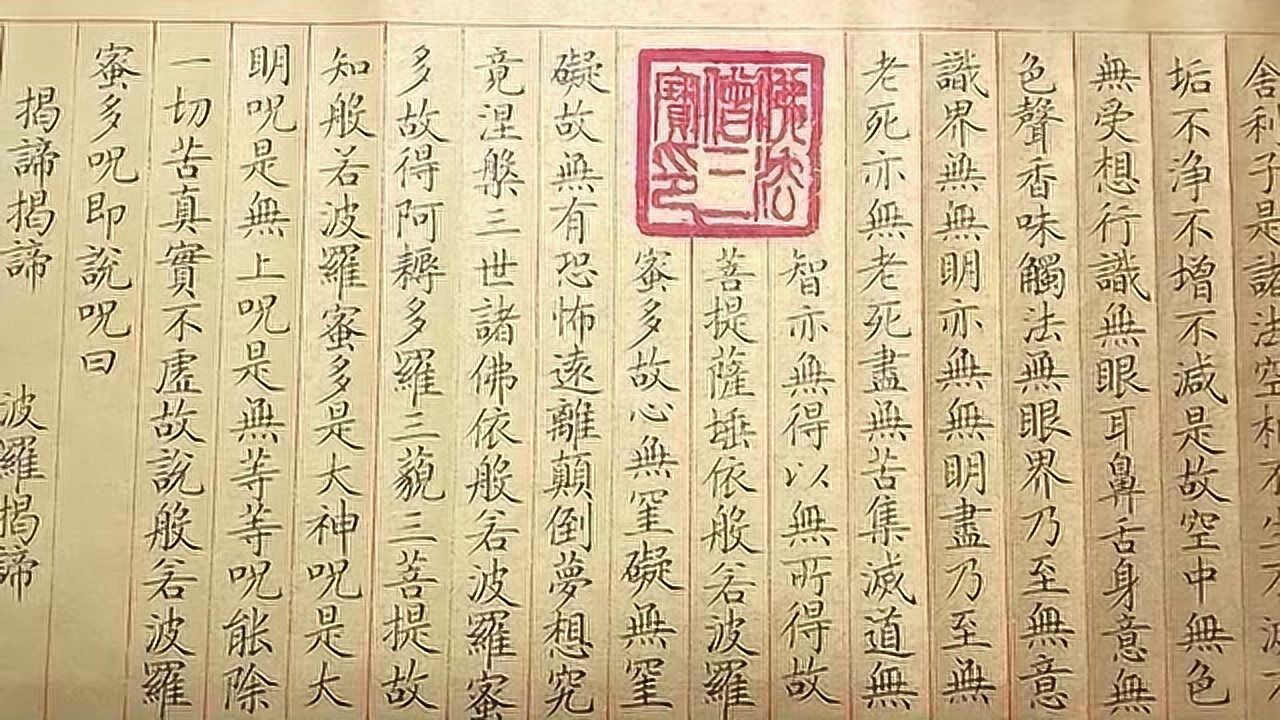 舍利子是諸法空相不生不滅不
垢不淨不增不減是故空中無色
無受想行識無眼耳鼻舌身意無
色聲香味觸法無眼界乃至無意
識界無無明亦無無明盡乃至無
老死亦無老死盡無苦集滅道無
佛法僧三寶印
智亦無得以無所得故
菩提薩埵依般若波羅
蜜多故心無罣礙無罣
礙故無有恐怖遠離顛倒夢想究
竟涅槃三世諸佛依般若波羅蜜
多故得阿耨多羅三藐三菩提故
知般若波羅蜜多是大神呪是大
明呪是無上呪是無等等呪能除
一切苦真實不虛故說般若波羅
蜜多呪即說呪曰
揭諦揭諦 波羅揭諦